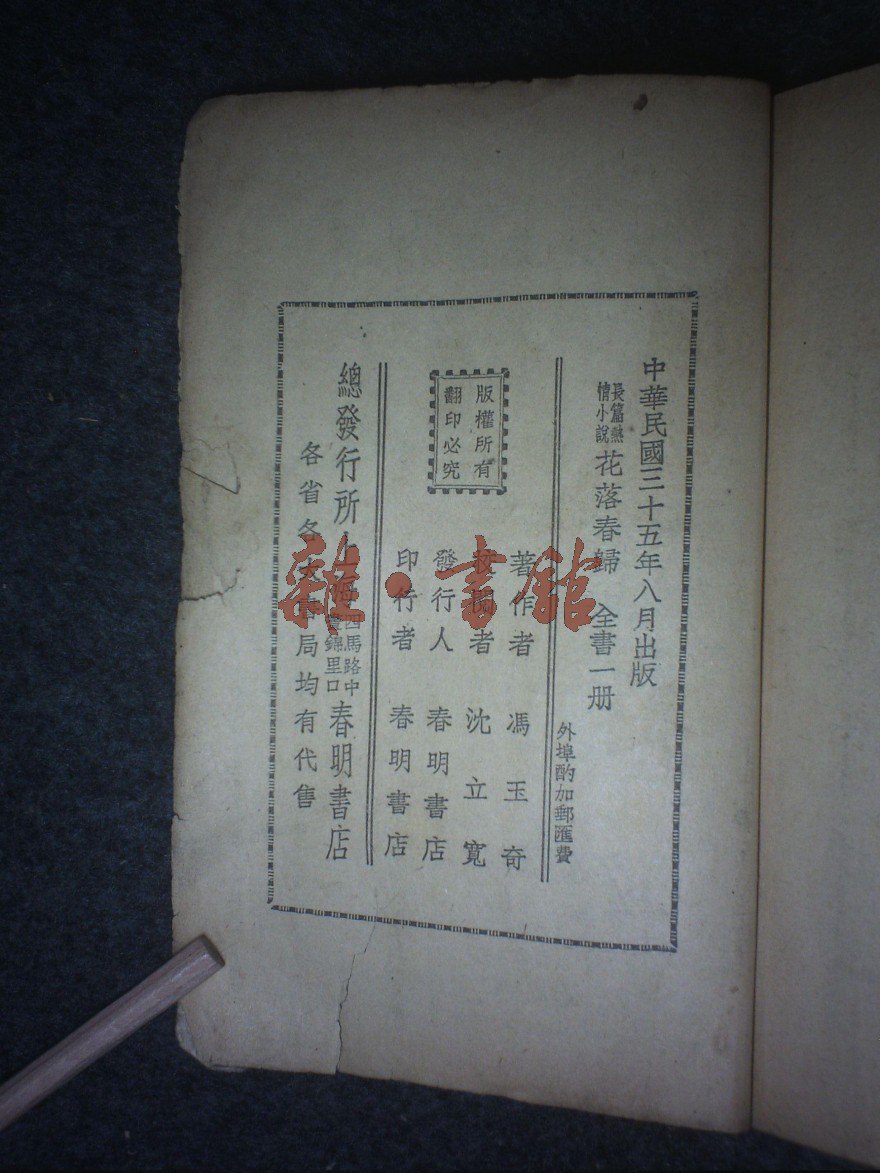 中華民國三十五年八月出版
長篇熱
情小說
花落春歸 全書一册
外埠酌加郵匯費
版權所有
翻印必究
著作者 馮玉奇
校閱者 沈立寬
發行人 春明書店
印行者 春明書店
總發行所上海四馬路中
畫錦里口
春明書店
各省各大書局均有代售
雜·書館